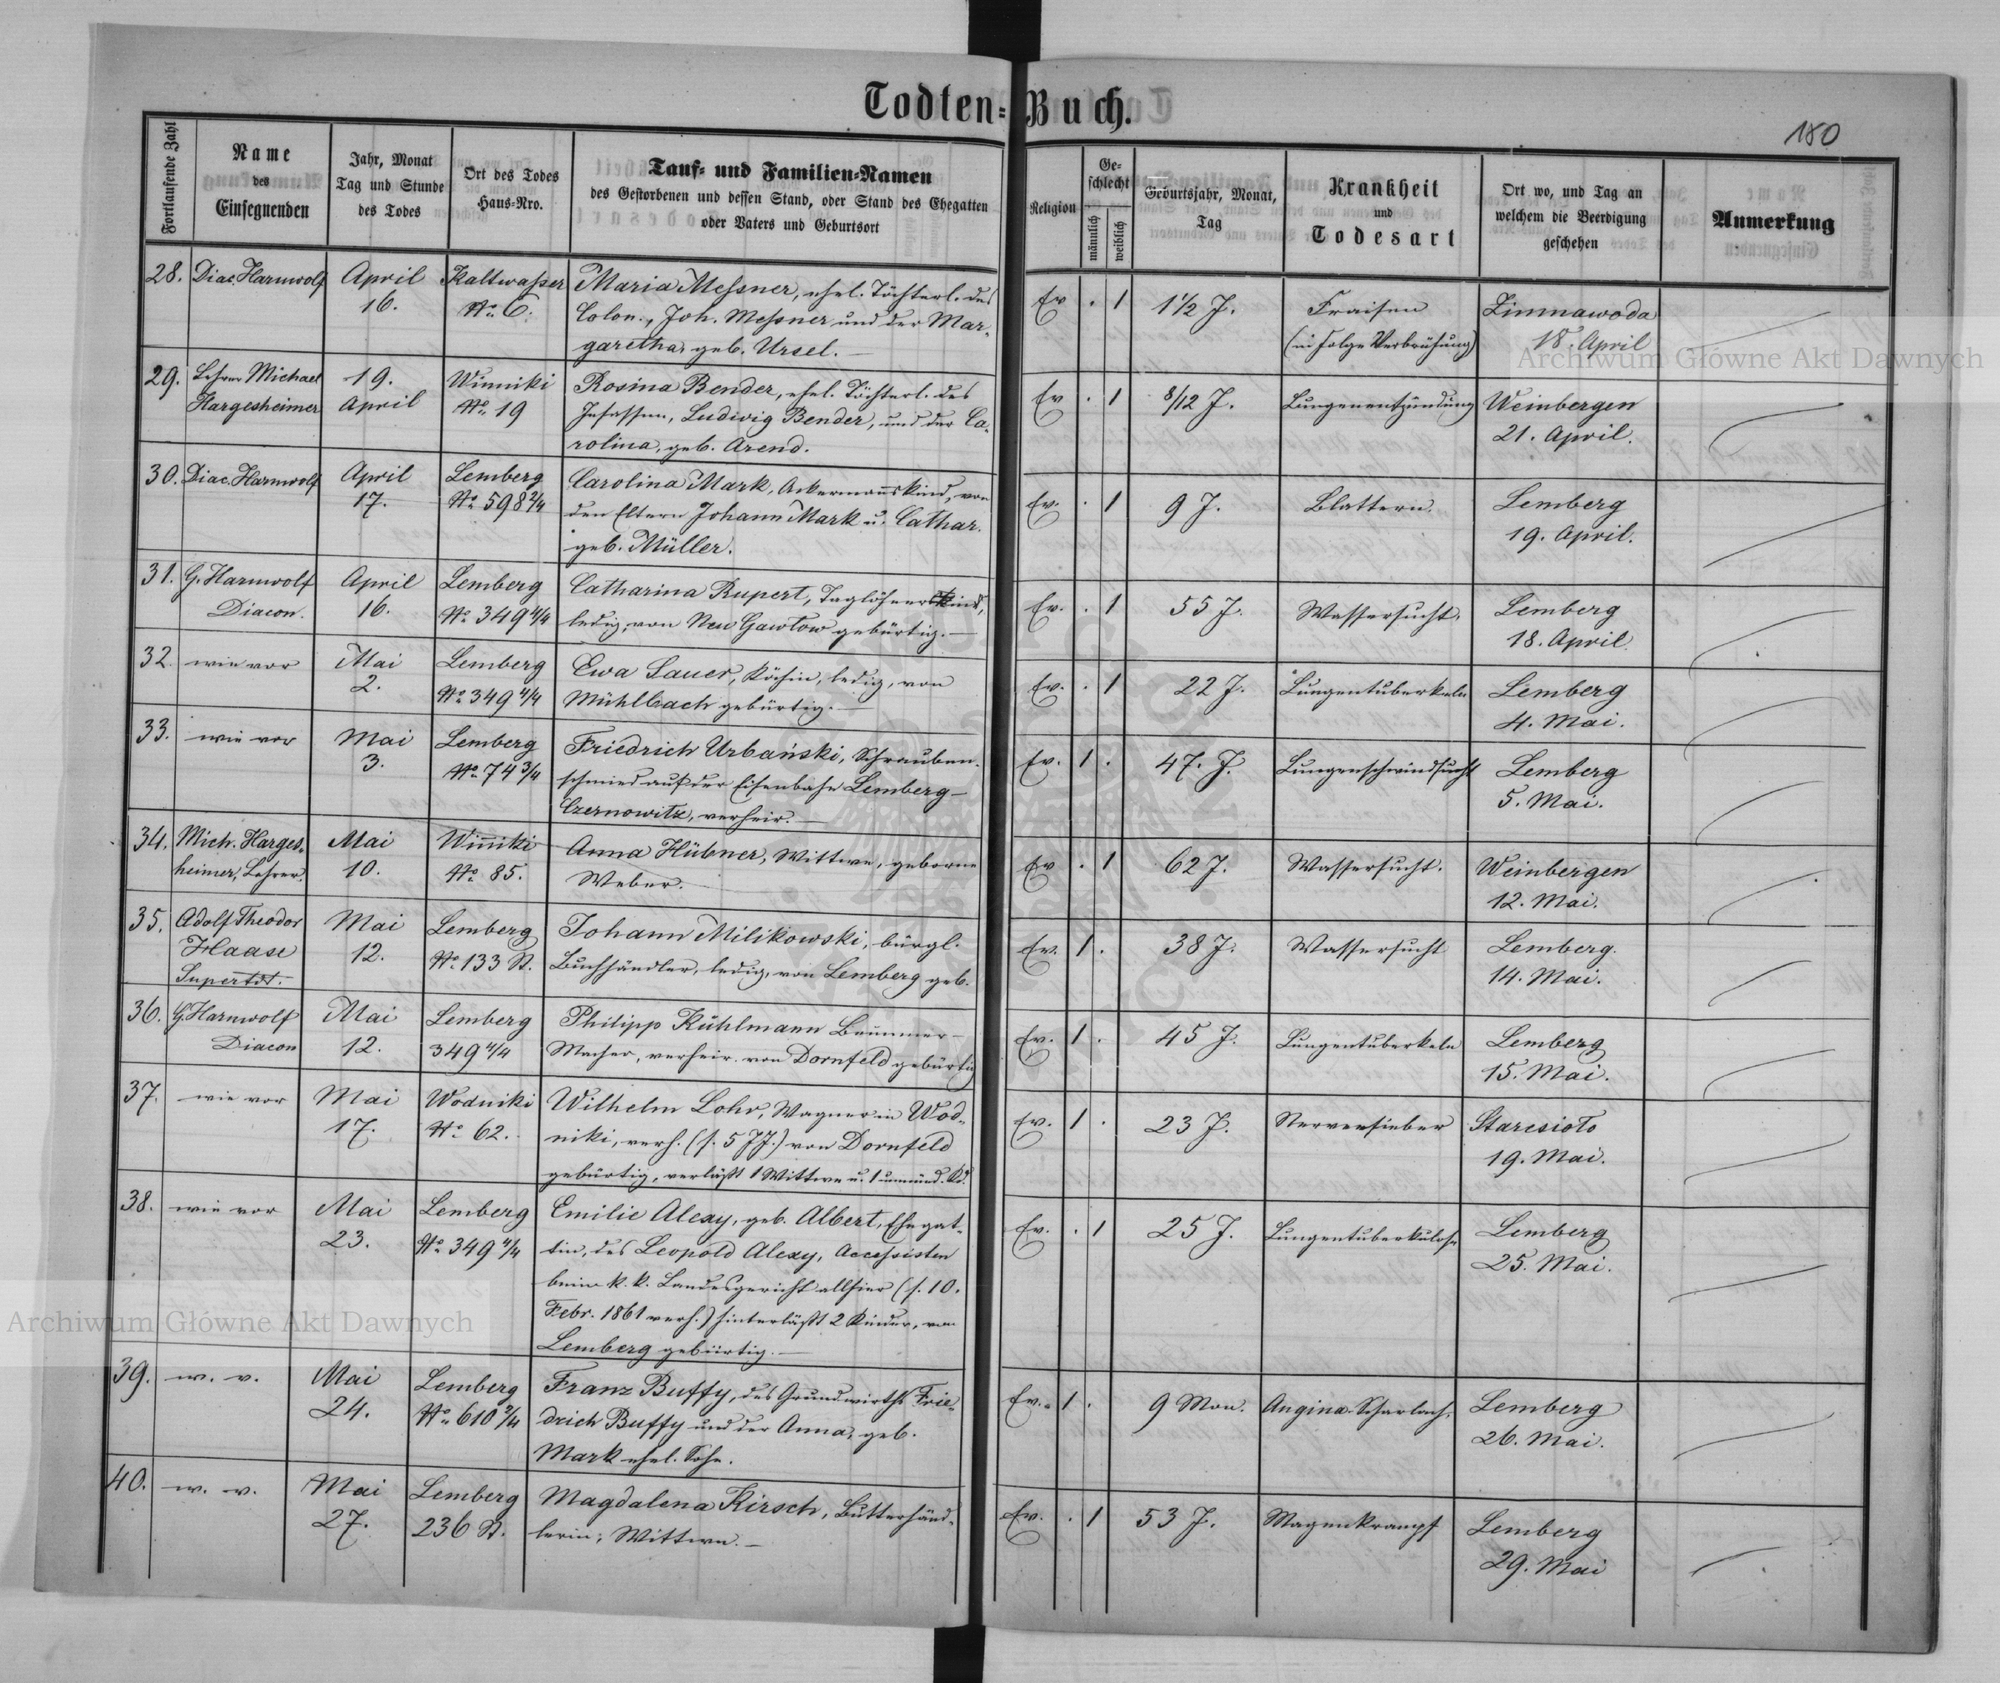 Todten-Buch.
180
Fortlaufende Zahl
Name
des
Einsegnenden
Jahr, Monat
Tag und Stunde
des Todes
Ort des Todes
Haus-Nro.
Tauf- und Familien-Namen
des Gestorbenen und dessen Stand, oder Stand des Ehegatten
oder Vaters und Geburtsort
Religion
Ge-
schlecht
männlich
weiblich
Geburtsjahr, Monat,
Tag
Krankheit
und
Todesart
Ort wo, und Tag an
welchem die Beerdigung
geschehen
Anmerkung
28. Diac. Harmwolf April Kaltwaßer Maria Meßner, ehel. Töchterl. des Ev . 1 1½ J. Fraisen Zimnawoda
16. No. 6. Colon., Joh. Meßner und der Mar- (in Folge Verbrühung) 18. April
garetha, geb. Ursel. —
29. Lehrer Michael 19. Winniki Rosina Bender, ehel. Töchterl. des Ev . 1 8/12 J. Lungenentzündung Weinbergen
Hargesheimer April No. 19 Insassen, Ludwig Bender, und der Ca- 21. April.
rolina, geb. Arend.
30. Diac. Harmwolf April Lemberg Carolina Mark, Ackermannskind, von Ev. . 1 9 J. Blattern Lemberg
17. No. 598 2/4 den Eltern Johann Mark u. Cathar. 19. April.
geb. Müller.
31. G. Harmwolf April Lemberg Catharina Rupert, Taglöhnerskind, Ev. . 1 55 J. Wassersucht. Lemberg
Diacon. 16. No. 349 4/4 ledig, von Neu Gawłow gebürtig. — 18. April.
32. wie vor Mai Lemberg Ewa Sauer, Köchin, ledig, von Ev. . 1 22 J. Lungentuberkeln Lemberg
2. No. 349 4/4 Mühlbach gebürtig. — 4. Mai.
33. wie vor Mai Lemberg Friedrich Urbański, Schrauben- Ev. 1 . 47. J. Lungenschwindsucht Lemberg
3. No. 74 3/4 schmied auf der Eisenbahn Lemberg- 5. Mai.
Czernowitz, verheir. —
34. Mich. Harges- Mai Winniki Anna Hübner, Wittwe, geborne Ev . 1 62 J. Wassersucht. Weinbergen
heimer, Lehrer. 10. No. 85. Weber. 12. Mai.
35. Adolf Theodor Mai Lemberg Johann Milikowski, bürgl. Ev. 1 . 38 J. Wassersucht Lemberg.
Haase 12. No. 133 St. Buchhändler, ledig, von Lemberg geb. 14. Mai.
Supertdt.
36. G. Harmwolf Mai Lemberg Philipp Kühlmann Brunner- Ev. 1 . 45 J. Lungentuberkeln Lemberg
Diacon 12. 349 4/4 Macher, verheir. von Dornfeld gebürtig 15. Mai.
37. wie vor Mai Wodniki Wilhelm Lohr, Wagner in Wod- Ev. 1 . 23 J. Nervenfieber Staresioło
17. No. 62. niki, verh. (s. 5 JJ.) von Dornfeld 19. Mai.
gebürtig, verläßt 1 Wittwe u. 1 unmünd. Kd.
38. wie vor Mai Lemberg Emilie Alexy, geb. Albert, Ehegat- Ev. . 1 25 J. Lungentuberkulose Lemberg
23. No. 349 4/4 tin, des Leopold Alexy, Accessisten 25. Mai.
beim k. k. Landesgericht allhier (s. 10.
Febr. 1861 verh.) hinterläßt 2 Kinder, von
Lemberg gebürtig. —
39. w. v. Mai Lemberg Franz Buffy, des Grundwirths Frie- Ev. 1 . 9 Mon. Angina. Scharlach. Lemberg
24. No. 610 2/4 drich Buffy und der Anna, geb. 26. Mai.
Mark ehel. Sohn.
40. w. v. Mai Lemberg Magdalena Kirsch, Butterhänd- Ev. . 1 53 J. Magenkrampf Lemberg
27. 236 St. lerin, Wittwe. — 29. Mai
Archiwum Główne Akt Dawnych
Archiwum Główne Akt Dawnych